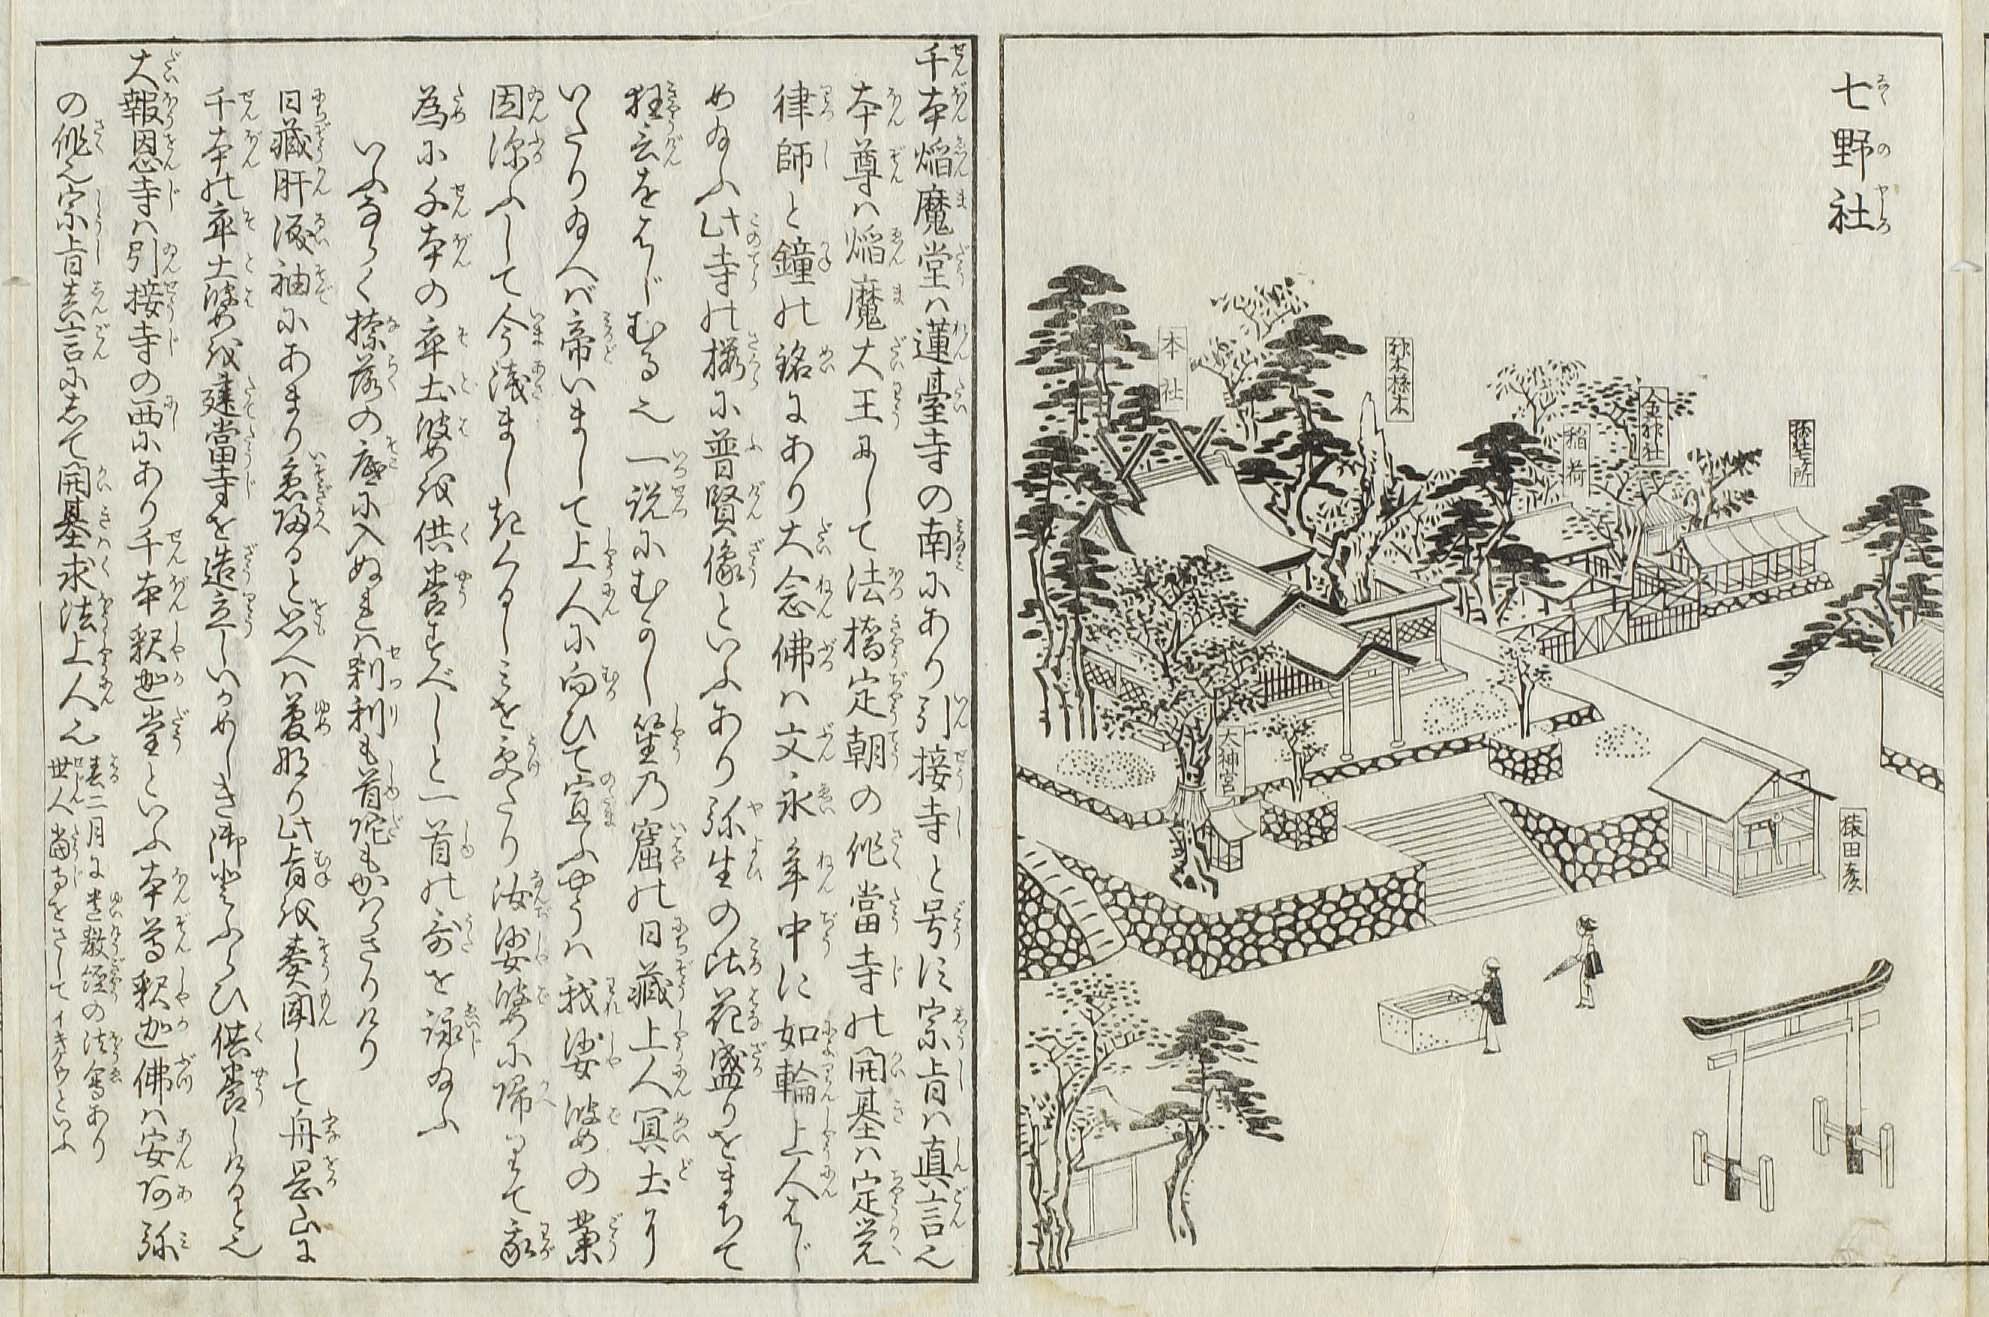 七野社
本社
稲荷
金神社
大神宮
猿田彦
千本焔魔堂ハ蓮臺寺の南にあり引接寺と号に宗旨ハ真言也
本尊ハ焔魔大王にして法橋定朝の作當寺の開基ハ定覚
律師と鐘の銘にあり大念佛ハ文永年中に如輪上人はじ
め給ふ此寺の桜に普賢像といふあり弥生の比花盛りをまちて
狂言をはじむる也一説にむかし笙乃窟の日藏上人冥土に
いたり給へば帝いまして上人に向ひて宣ふやうハ我娑婆の業
因深ふして今浅まし
汝娑婆に帰りて我
為に千本の卒土婆を供養すべしと一首の哥を詠給ふ
いふならく捺落の底に入ぬれハ刹利も首陀もかはらさりけり
日藏肝涙袖にあまり急帰ると思へハ夢なり此旨を奏聞して舟岡山に
千本の卒土婆を建當寺を造立しいかめしき御とふらひ供養しけると也
大報恩寺ハ引接寺の西にあり千本釈迦堂といふ本尊釈迦佛ハ安阿弥
の作也宗旨真言にして開基求法上人也
春二月に遺教經の法会あり
世人當寺をさして
といふ